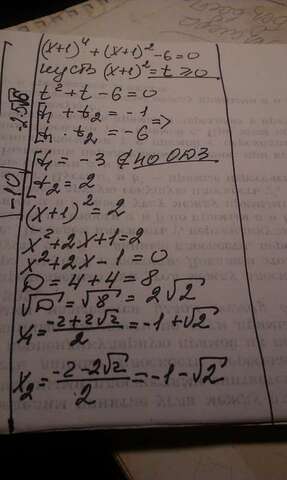 (x+1)⁴ + (x+1)² - 6 = 0
пусть (x+1)² = t ≥ 0
t² + t - 6 = 0
t₁ + t₂ = -1
t₁ · t₂ = -6 =>
t₁ = -3 ∉ по ОДЗ
t₂ = 2
(x+1)² = 2
x² + 2x + 1 = 2
x² + 2x - 1 = 0
D = 4 + 4 = 8
√D = √8 = 2√2
x₁ = (-2+2√2)/2 = -1 + √2
x₂ = (-2-2√2)/2 = -1 - √2
-10